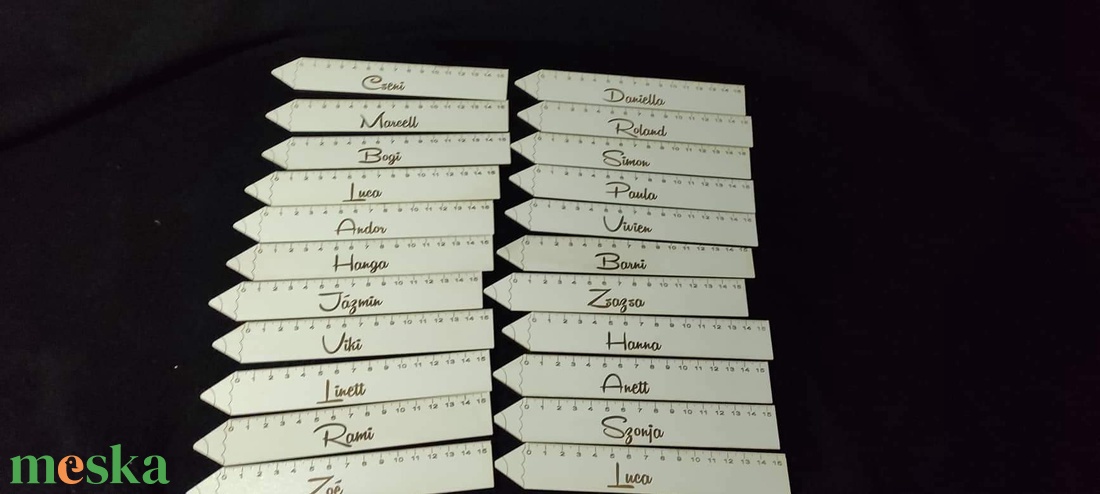 Cseni
Marcell
Bogi
Luca
Andor
Hanga
Jázmin
Viki
Linett
Rami
Zoé
Daniella
Roland
Simon
Paula
Vivien
Barni
Zsazsa
Hanna
Anett
Szonja
Luca
meska